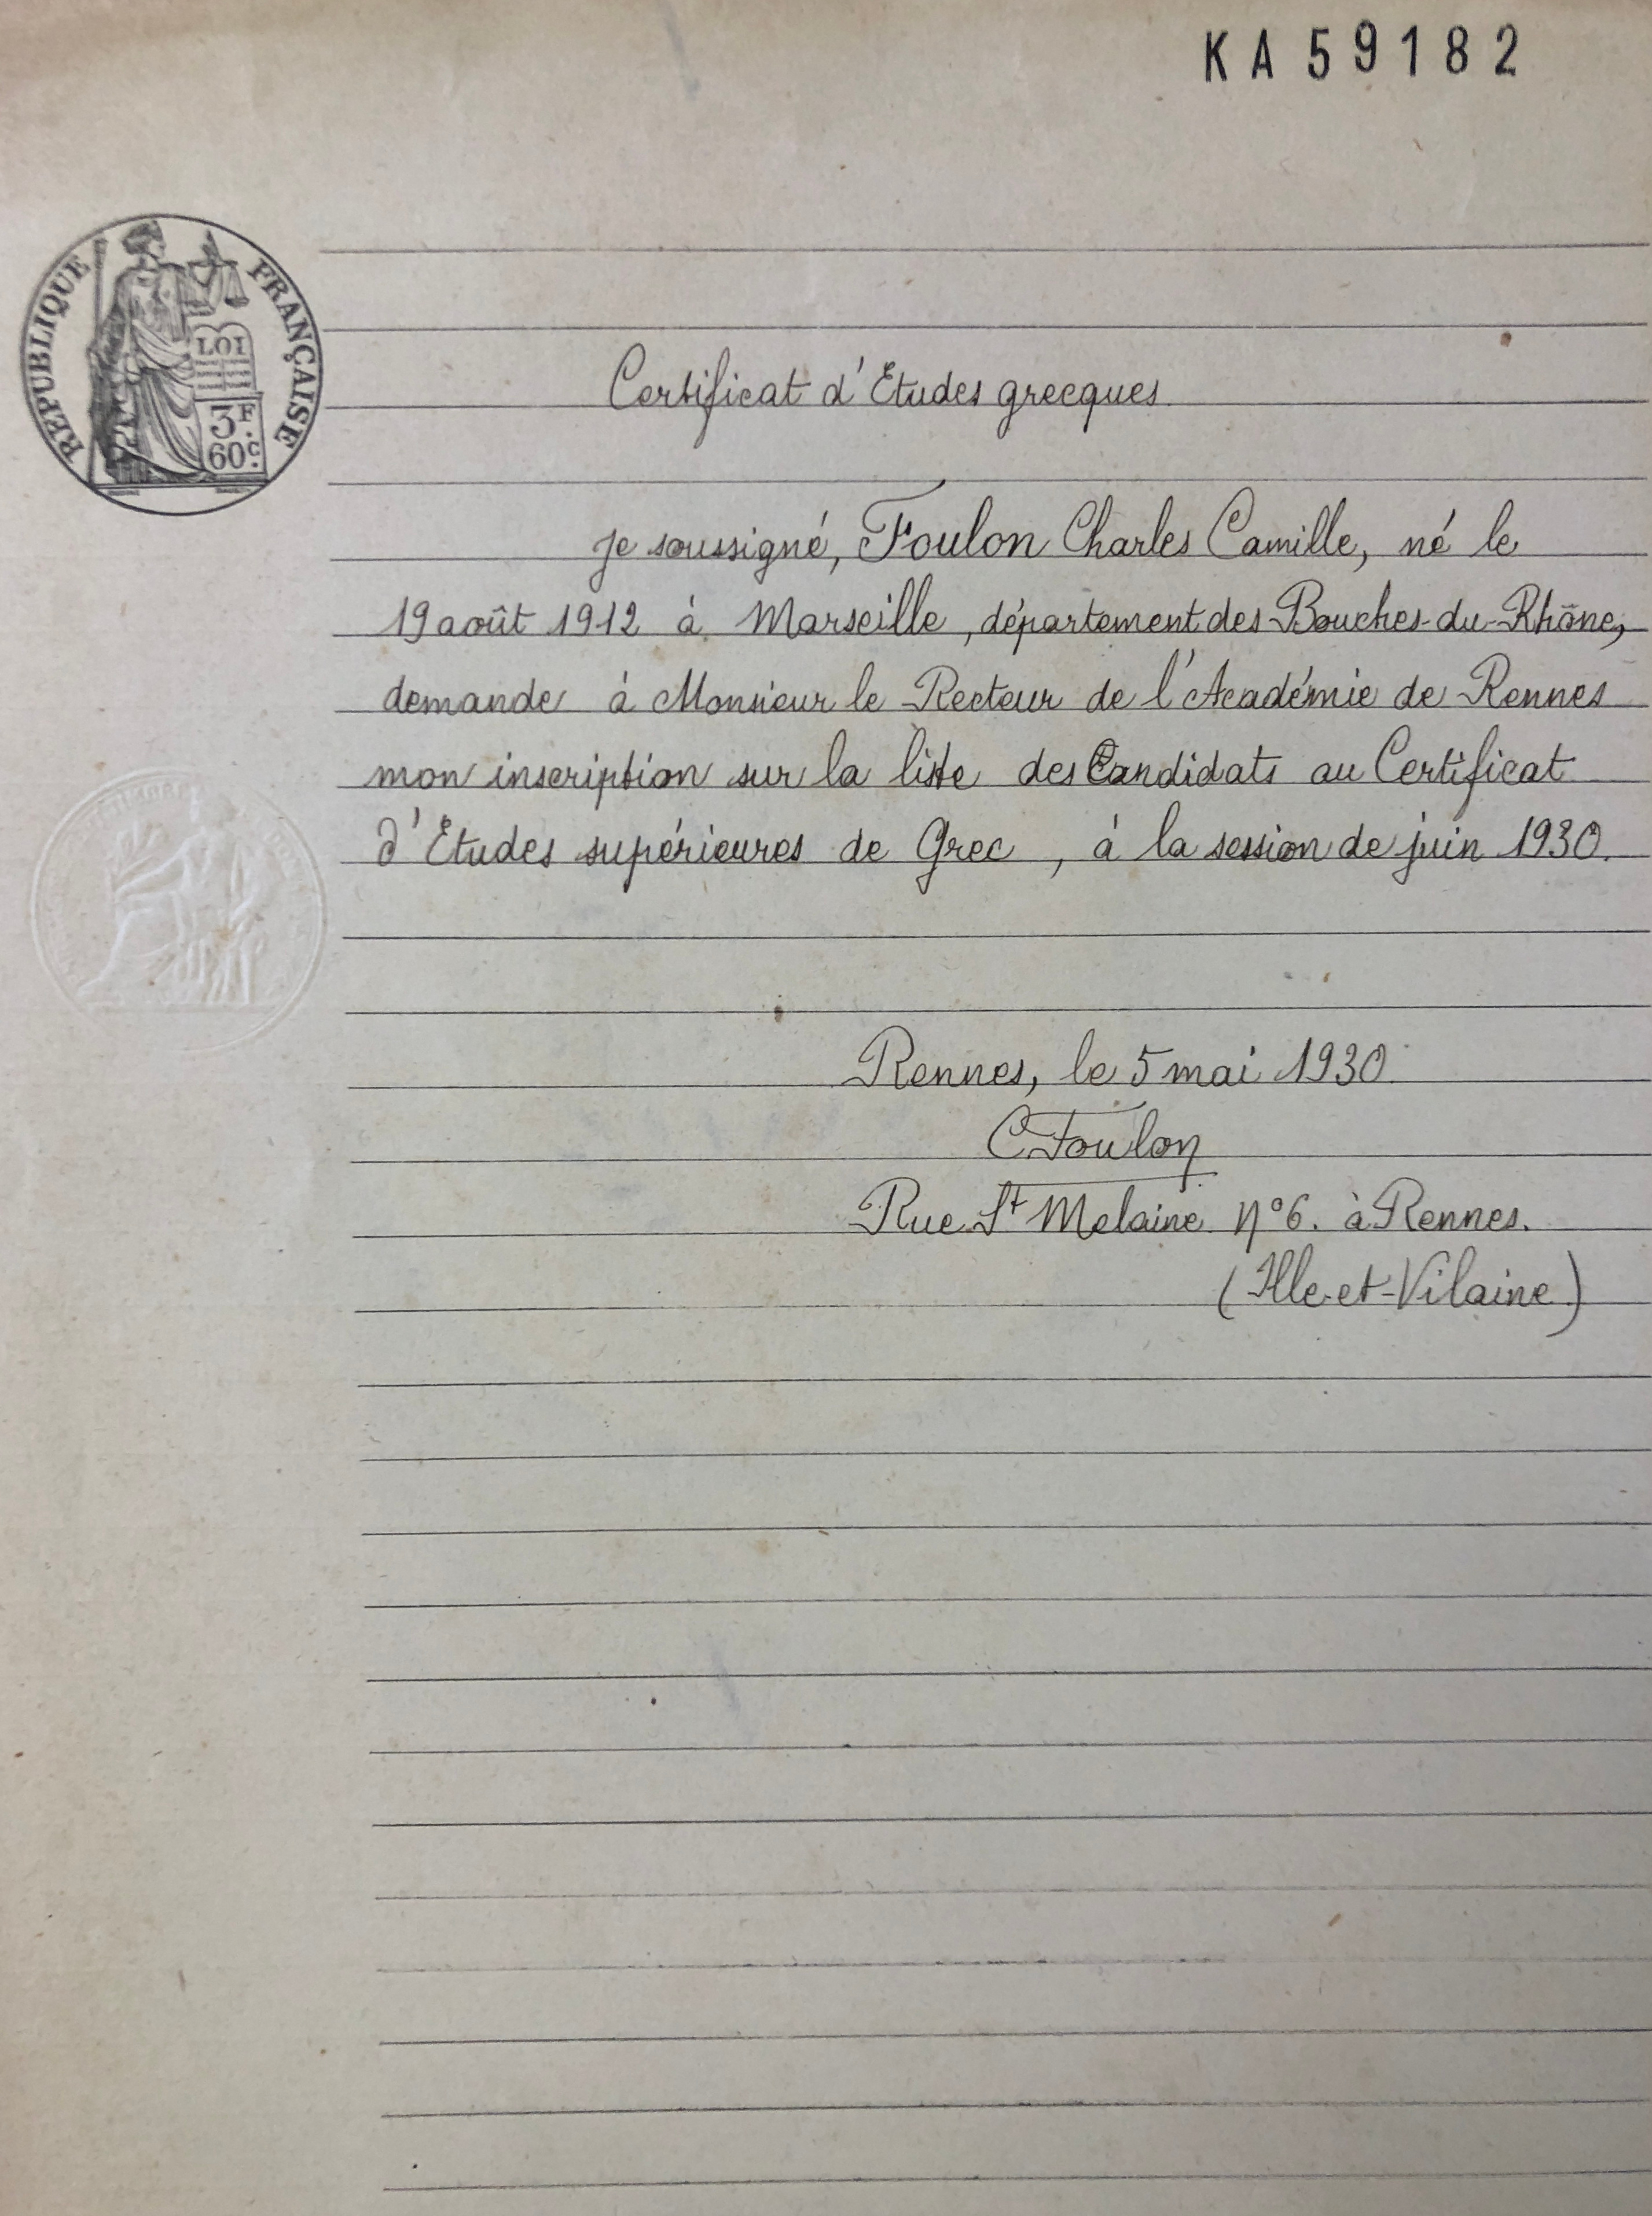 KA59182
REPUBLIQUE FRANÇAISE
LOI
3F.
60c.
Certificat d'Etudes grecques.
Je soussigné, Foulon Charles Camille, né le
19 août 1912 à Marseille, département des Bouches-du-Rhône,
demande à Monsieur le Recteur de l'Académie de Rennes
mon inscription sur la liste des Candidats au Certificat
d'Etudes supérieures de Grec, à la session de juin 1930.
Rennes, le 5 mai 1930
CFoulon
Rue St Melaine N°6. à Rennes.
(Ille-et-Vilaine)